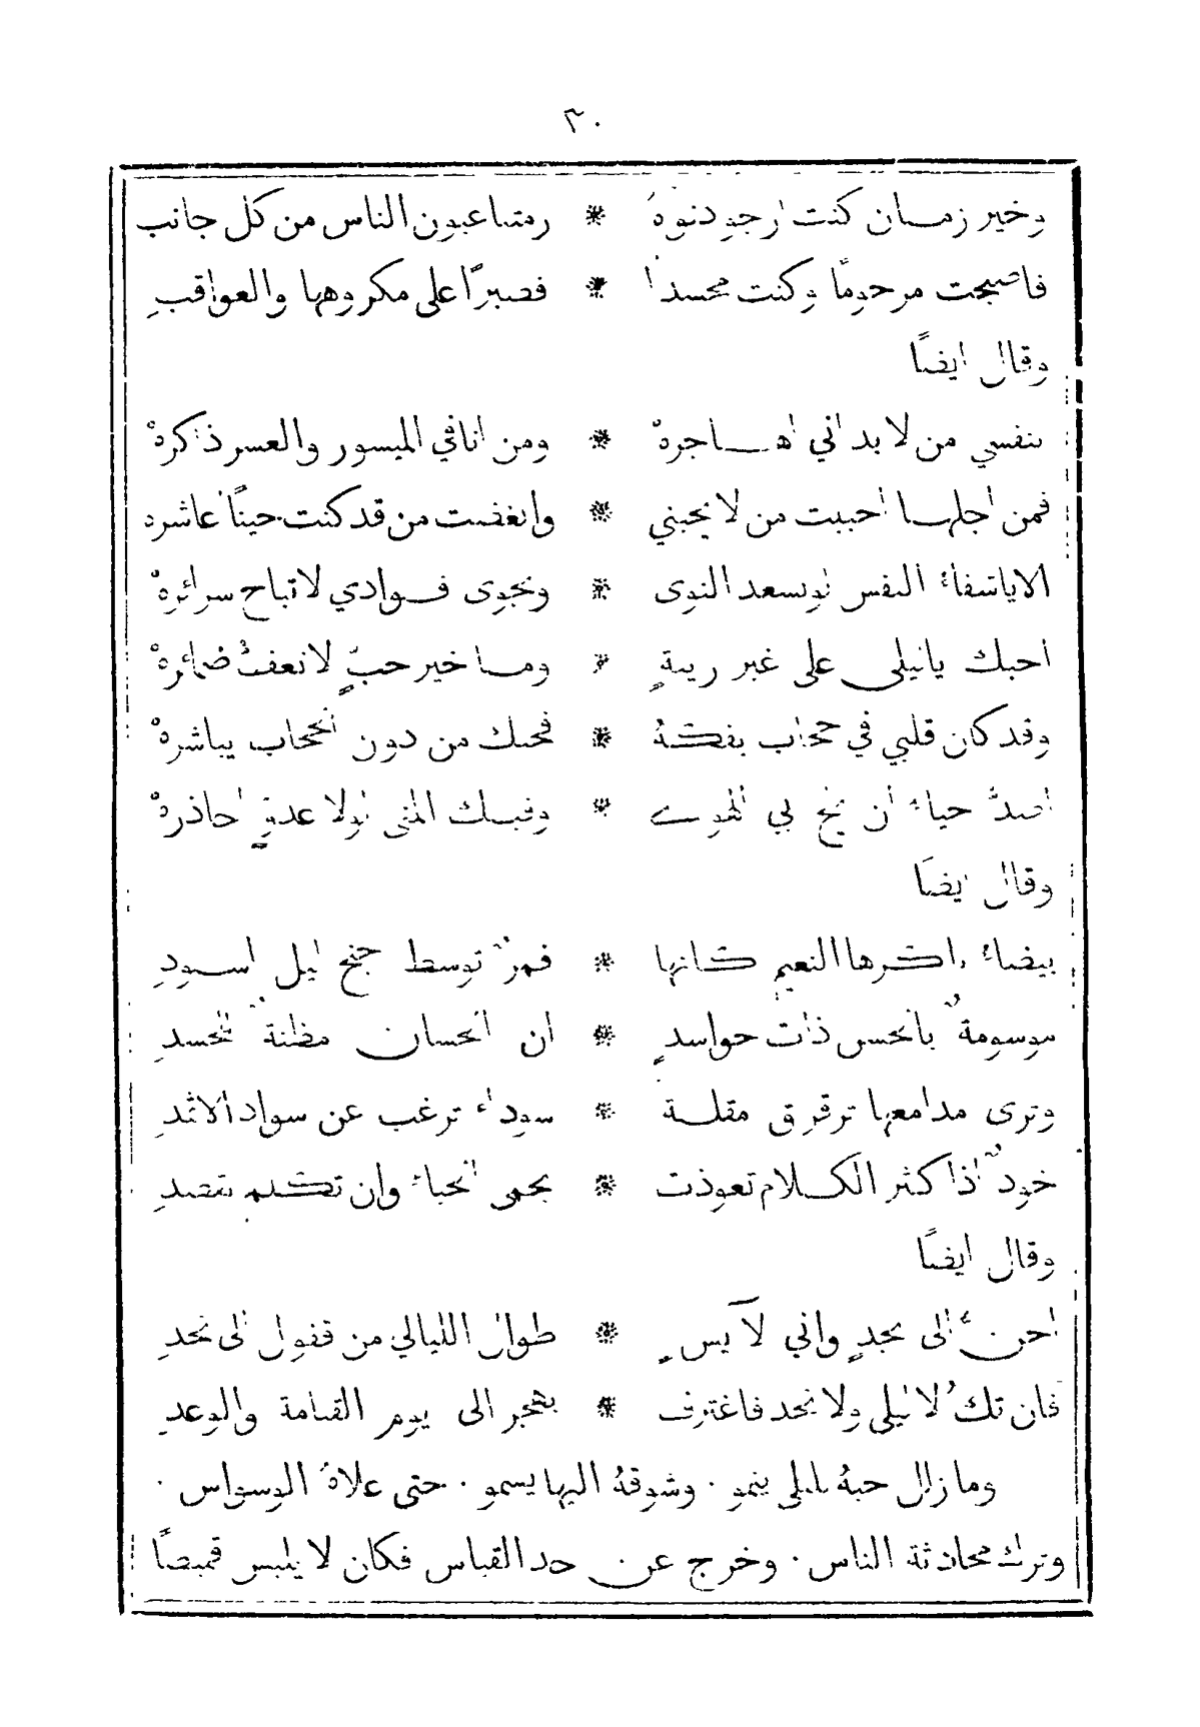 ٣٠
وخير زمان كنت ارجو دنوهُ * رمتنا عيون الناس من كل جانب
فاصبحت مرحومًا وكنت محسدًا * فصبرًا على مكروهها والعواقبِ
وقال ايضًا
بنفسي من لا بد اني اهاجرهْ * ومن انا في الميسور والعسر ذاكرهْ
فمن اجلها احببت من لا يحبني * وابغضت من قد كنت حينًا عاشره
الا يا شفاءَ النفس لو يسعد النوى * ونجوى فوادي لا تباح سرائرهْ
احبك يا ليلى على غير ريبةٍ * وما خير حبٍّ لا تعفُّ ضمائرهْ
وقد كان قلبي في حجاب يفكهُ * فحبك من دون الحجاب يباشرهْ
اصدُّ حياءً ان يلج بي الهوى * وفيك المنى لولا عدوٍ احاذرهْ
وقال ايضًا
بيضاءُ باكرها النعيم كانها * قمرٌ توسط جنح ليل اسودِ
موسومةٌ بالحسن ذات حواسدٍ * ان الحسان مظنة للحسدِ
وترى مدامعها ترقرق مقلة * سوداءَ ترغب عن سواد الاثمدِ
خودٌ اذا كثر الكلام تعوذت * بحمى الحياءِ وان تكلم تقصدِ
وقال ايضًا
احنُّ الى نجدٍ واني لآيسٍ * طوال الليالي من قفول الى نجدِ
فان تكُ لا ليلى ولا نجد فاعترف * بهجر الى يوم القيامة والوعدِ
وما زال حبهُ لليلى ينمو ٠ وشوقهُ اليها يسمو ٠ حتى علاهُ الوسواس ٠
وترك محادثة الناس ٠ وخرج عن حد القياس فكان لا يلبس قميصًا